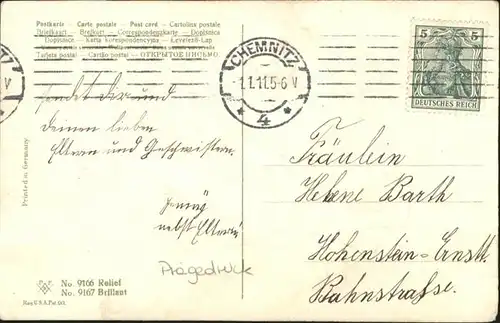 Postkarte — Carte postale — Post card — Cartolina postale
Briefkaart — Brefkort — Correspondenzkarte — Dopisnica
Dopisnice — Karta korespondencyjna — Levelező-Lap
Tarjeta postal — Cartão postal — ОТКРЫТОЕ ПИСЬМО
CHEMNITZ
1.1.11.5-6 V
* 4 *
5 5
DEUTSCHES REICH
sendet Dir und
Deinen lieben
Eltern und Geschwistern.
nebst Eltern
Prägedruck
Fräulein
Helene Barth
Hohenstein-Ernstt.
Bahnstrasse.
Printed in Germany
No. 9166 Relief
No. 9167 Brillant